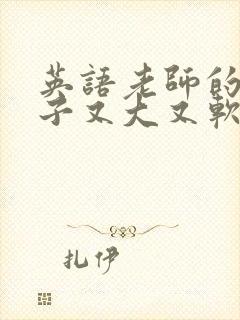 英語老師的
子又大又軟
扎伊